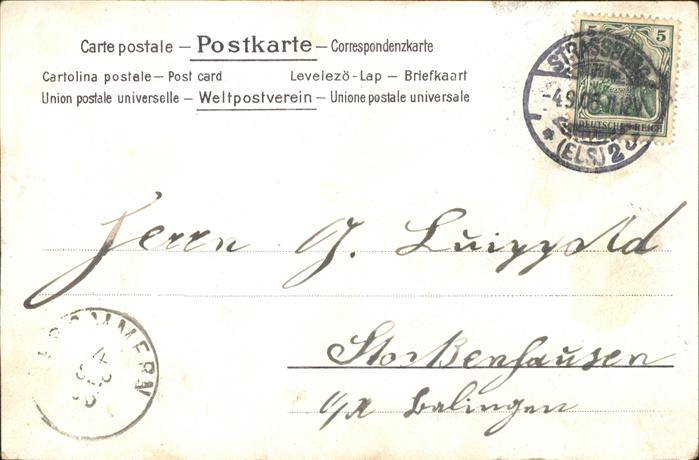 Carte postale — Postkarte — Correspondenzkarte
Cartolina postale — Post card Levelező-Lap — Briefkaart
Union postale universelle — Weltpostverein — Unione postale universale
5 5
DEUTSCHES REICH
STRASSBURG
-4.9.08
* (ELS) 2
Herrn G. Luippold
Stockenhausen
O/A Balingen
OMMERN